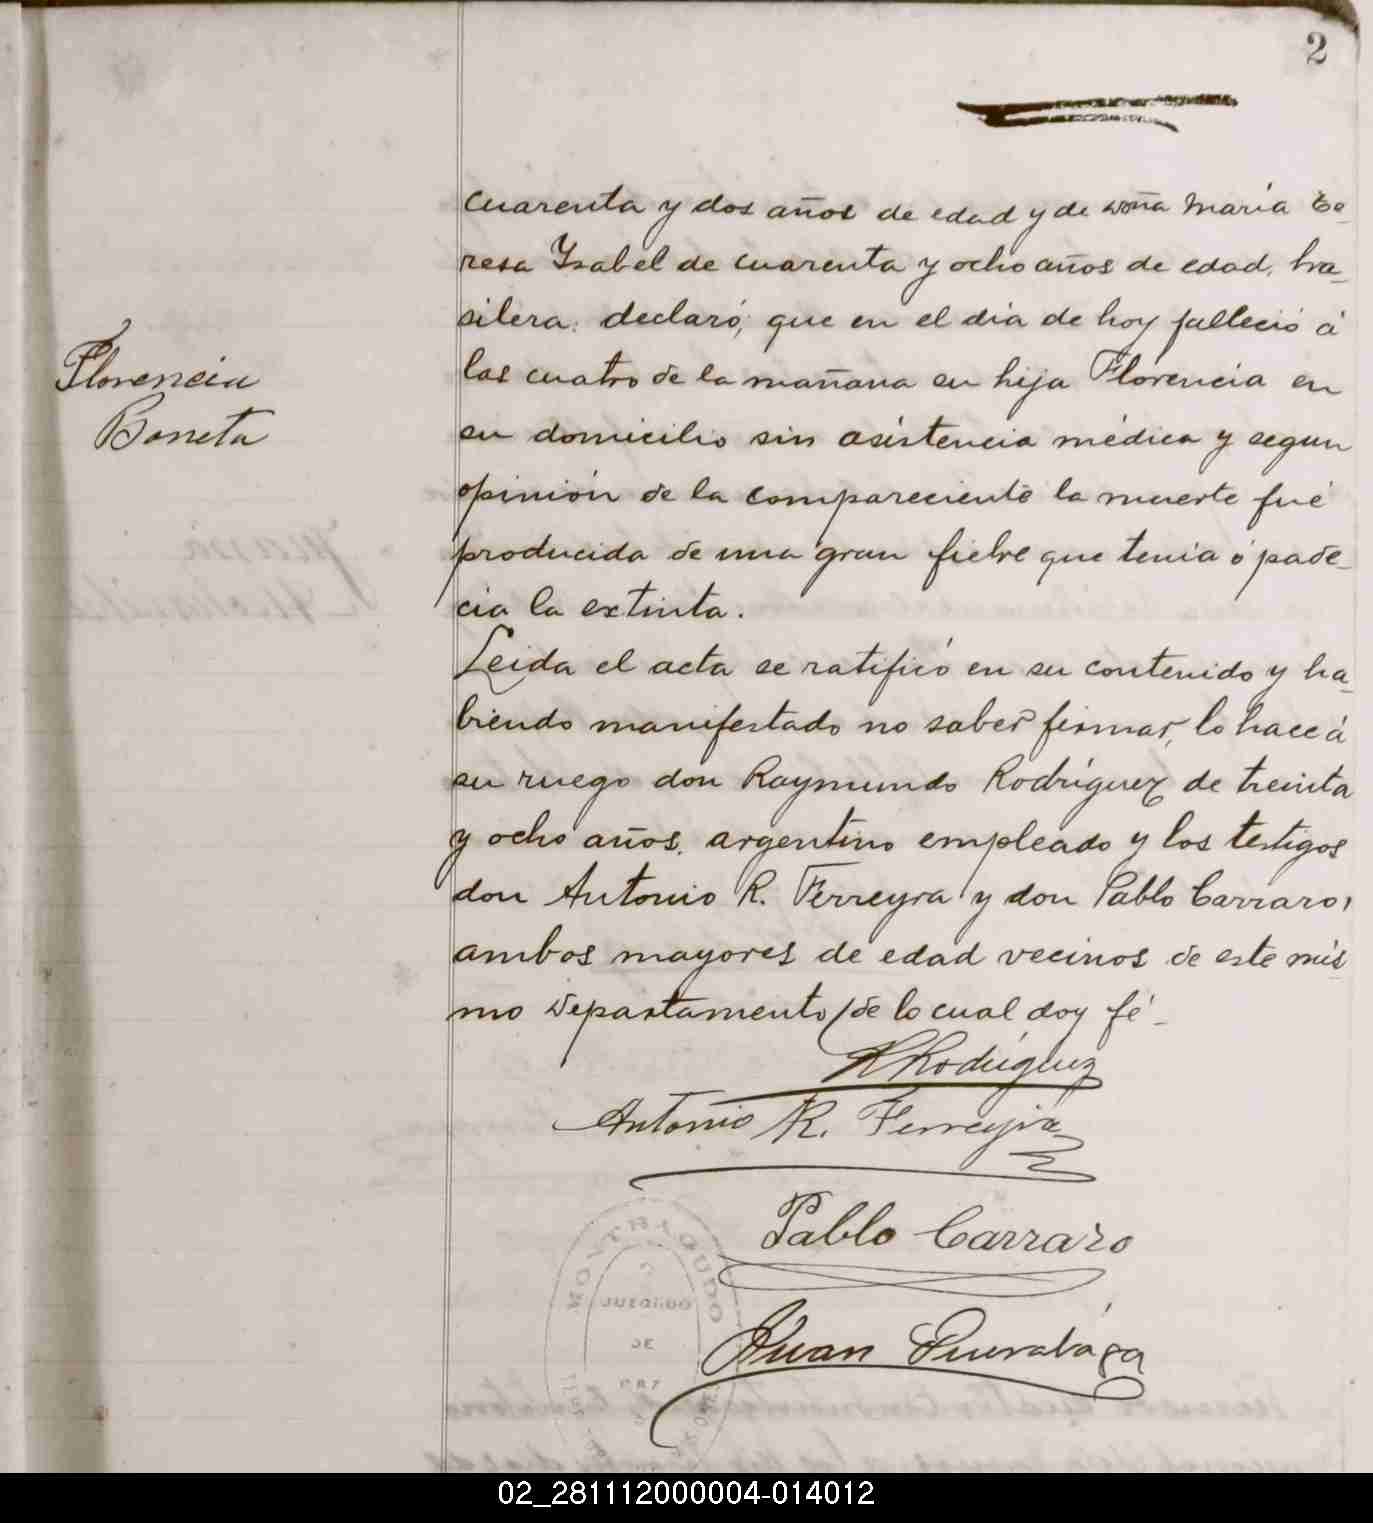 2
cuarenta y dos años de edad y de doña María Te-
resa Ysabel de cuarenta y ocho años de edad, bra-
silera: declaró; que en el dia de hoy falleció á
las cuatro de la mañana su hija Florencia en
su domicilio sin asistencia médica y segun
opinión de la compareciente la muerte fué
producida de una gran fiebre que tenia ó pade-
cia la extinta.
Florencia
Boneta
Leida el acta se ratificó en su contenido y ha-
biendo manifestado no saber firmar, lo hace á
su ruego don Raymundo Rodríguez de treinta
y ocho años, argentino empleado y los testigos
don Antonio R. Ferreyra y don Pablo Carraro,
ambos mayores de edad vecinos de este mis-
mo departamento, de lo cual doy fé-
R Rodríguez
Antonio R. Ferreyra
Pablo Carraro
Juan
MONTEAGUDO
JUZGADO
DE
PAZ
02_281112000004-014012